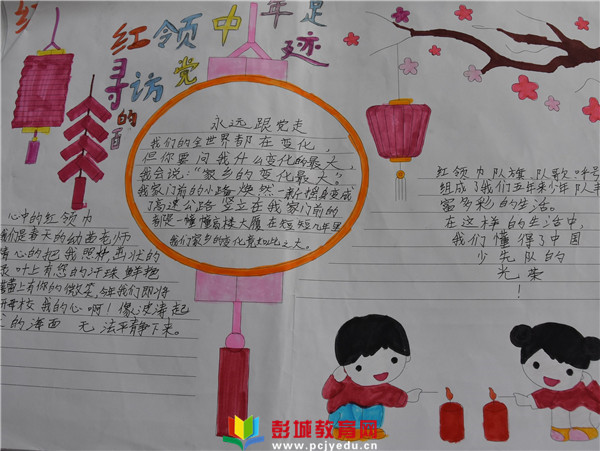 红领巾
寻访党
的
年足
迹
永远跟党走
我们的全世界都在变化,
但你要问我什么变化的最大,
我会说:"家乡的变化最大。"
我家门前的小路焕然一新摇身变成
了高速公路竖立在我家门前的
都是一幢幢高楼大厦在短短几年里
我们家乡的变化竟如此之大。
心中的红领巾
们是春天的幼苗老师
心的把我照料
叶上有您的汗珠鲜艳
上有你的微笑,今年我们即将
母校我的心啊!像波涛起
的海面 无法平静下来。
红领巾队旗、队歌、呼号
组成了我们五年来少年队丰
富多彩的生活。
在这样的生活中,
我们懂得了中国
少先队的
光荣
!
彭城教育网
www.pcjyedu.cn